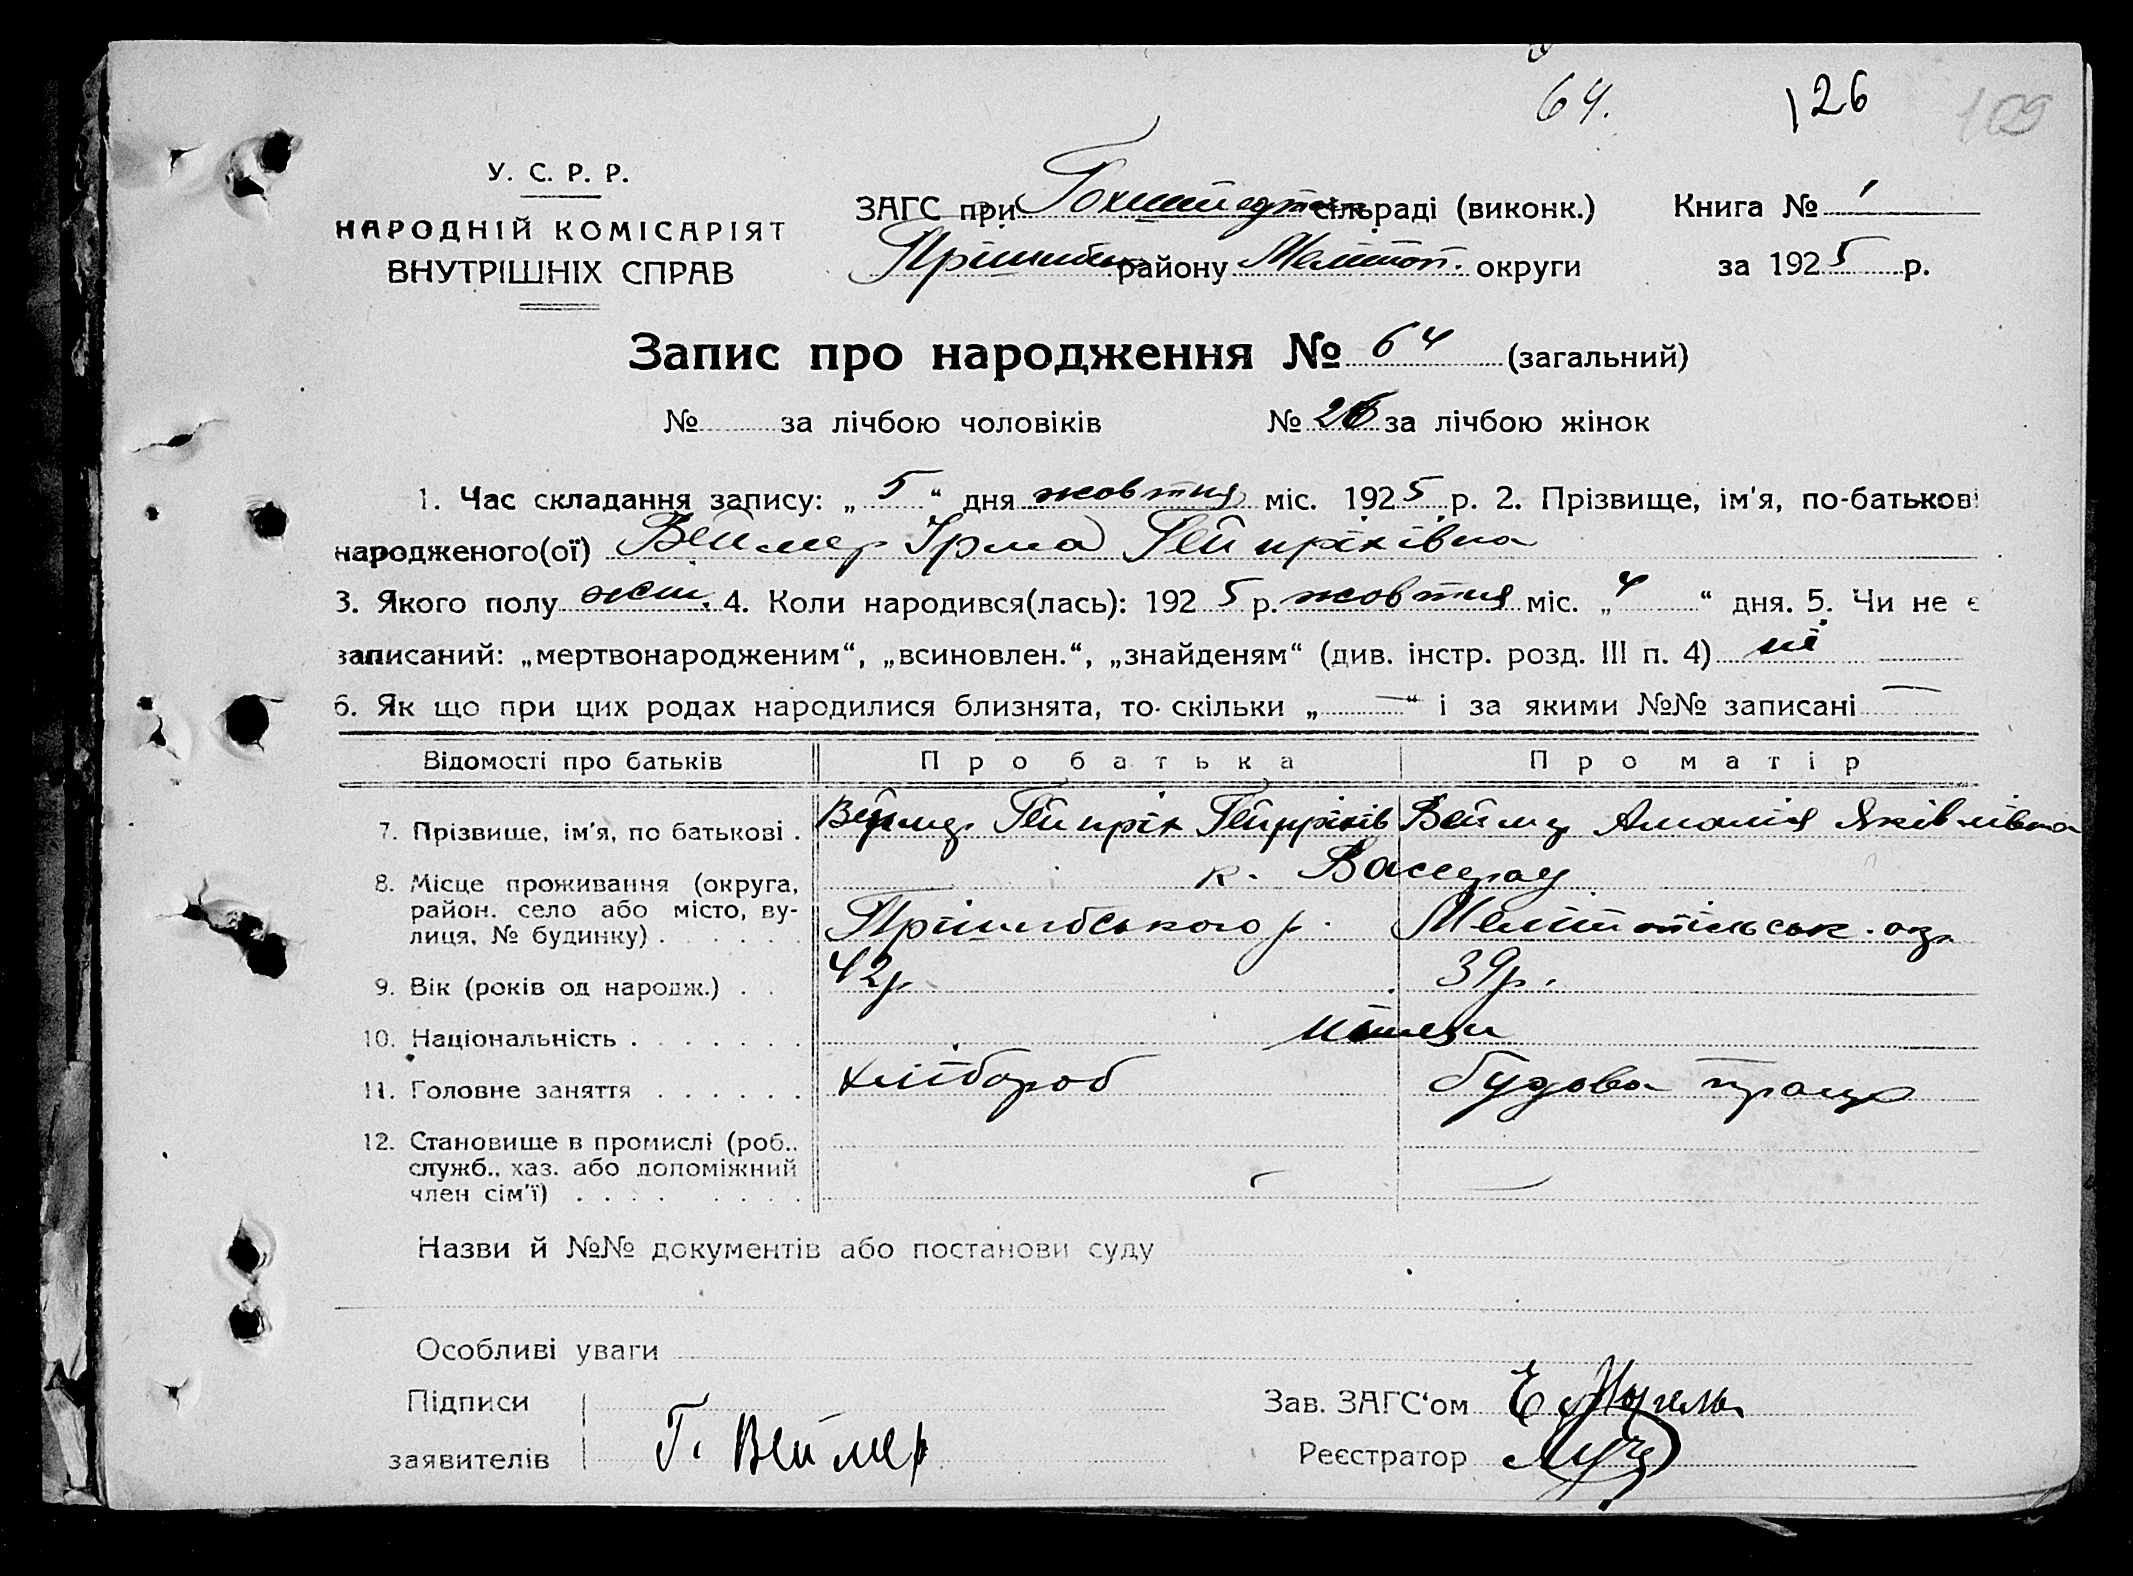 64. 126 109
У. С. Р. Р.
НАРОДНІЙ КОМІСАРІЯТ
ВНУТРІШНІХ СПРАВ
ЗАГС при Гохштедтськ сільраді (виконк.) Книга № 1
Пришибськ району Меліток. округи за 1925 р.
Запис про народження № 64 (загальний)
№ за лічбою чоловіків № 26 за лічбою жінок
1. Час складання запису: „5“ дня жовтня міс. 1925 р. 2. Прізвище, ім'я, по-батькові
народженого(ої) Веймер Ірма Гейнріхівна
3. Якого полу жін. 4. Коли народився(лась): 1925 р. жовтня міс. „4“ дня. 5. Чи не є
записаний: „мертвонародженим“, „всиновлен.“, „знайденям“ (див. інстр. розд. III п. 4) ні
6. Як що при цих родах народилися близнята, то скільки „—“ і за якими №№ записані —
Відомості про батьків Про батька Про матір
7. Прізвище, ім'я, по батькові . Веймер Гейнріх Гейнріхів Веймер Амалія Яківлівна
8. Місце проживання (округа,
район. село або місто, ву-
лиця, № будинку) . . . . . . к. Васерау
Прішибського р. Мелітопільськ. окр.
9. Вік (років од народж.) . . 42р 39р.
10. Національність . . . . . . . німци
11. Головне заняття . . . . . . хлібороб будова праця
12. Становище в промислі (роб..
служб.. хаз. або допоміжний
член сім'ї) . . . . . . . . — —
Назви й №№ документів або постанови суду
Особливі уваги
Підписи
заявителів Г. Веймер
Зав. ЗАГС‘ом Е
Реєстратор